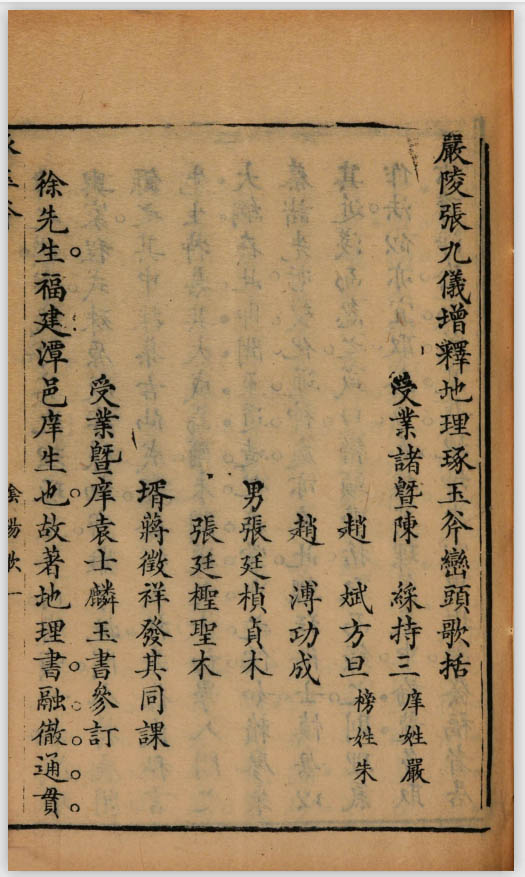 嚴陵張九儀增釋地理琢玉斧巒頭歌括
受業諸暨陳 綵持三 庠姓嚴
趙 斌方旦 榜姓朱
趙 溥功成
男張廷楨貞木
張廷檉聖木
壻蔣徵祥發其同課
受業暨庠袁士麟玉書參訂
徐先生福建潭邑庠生也故著地理書融徹通貫